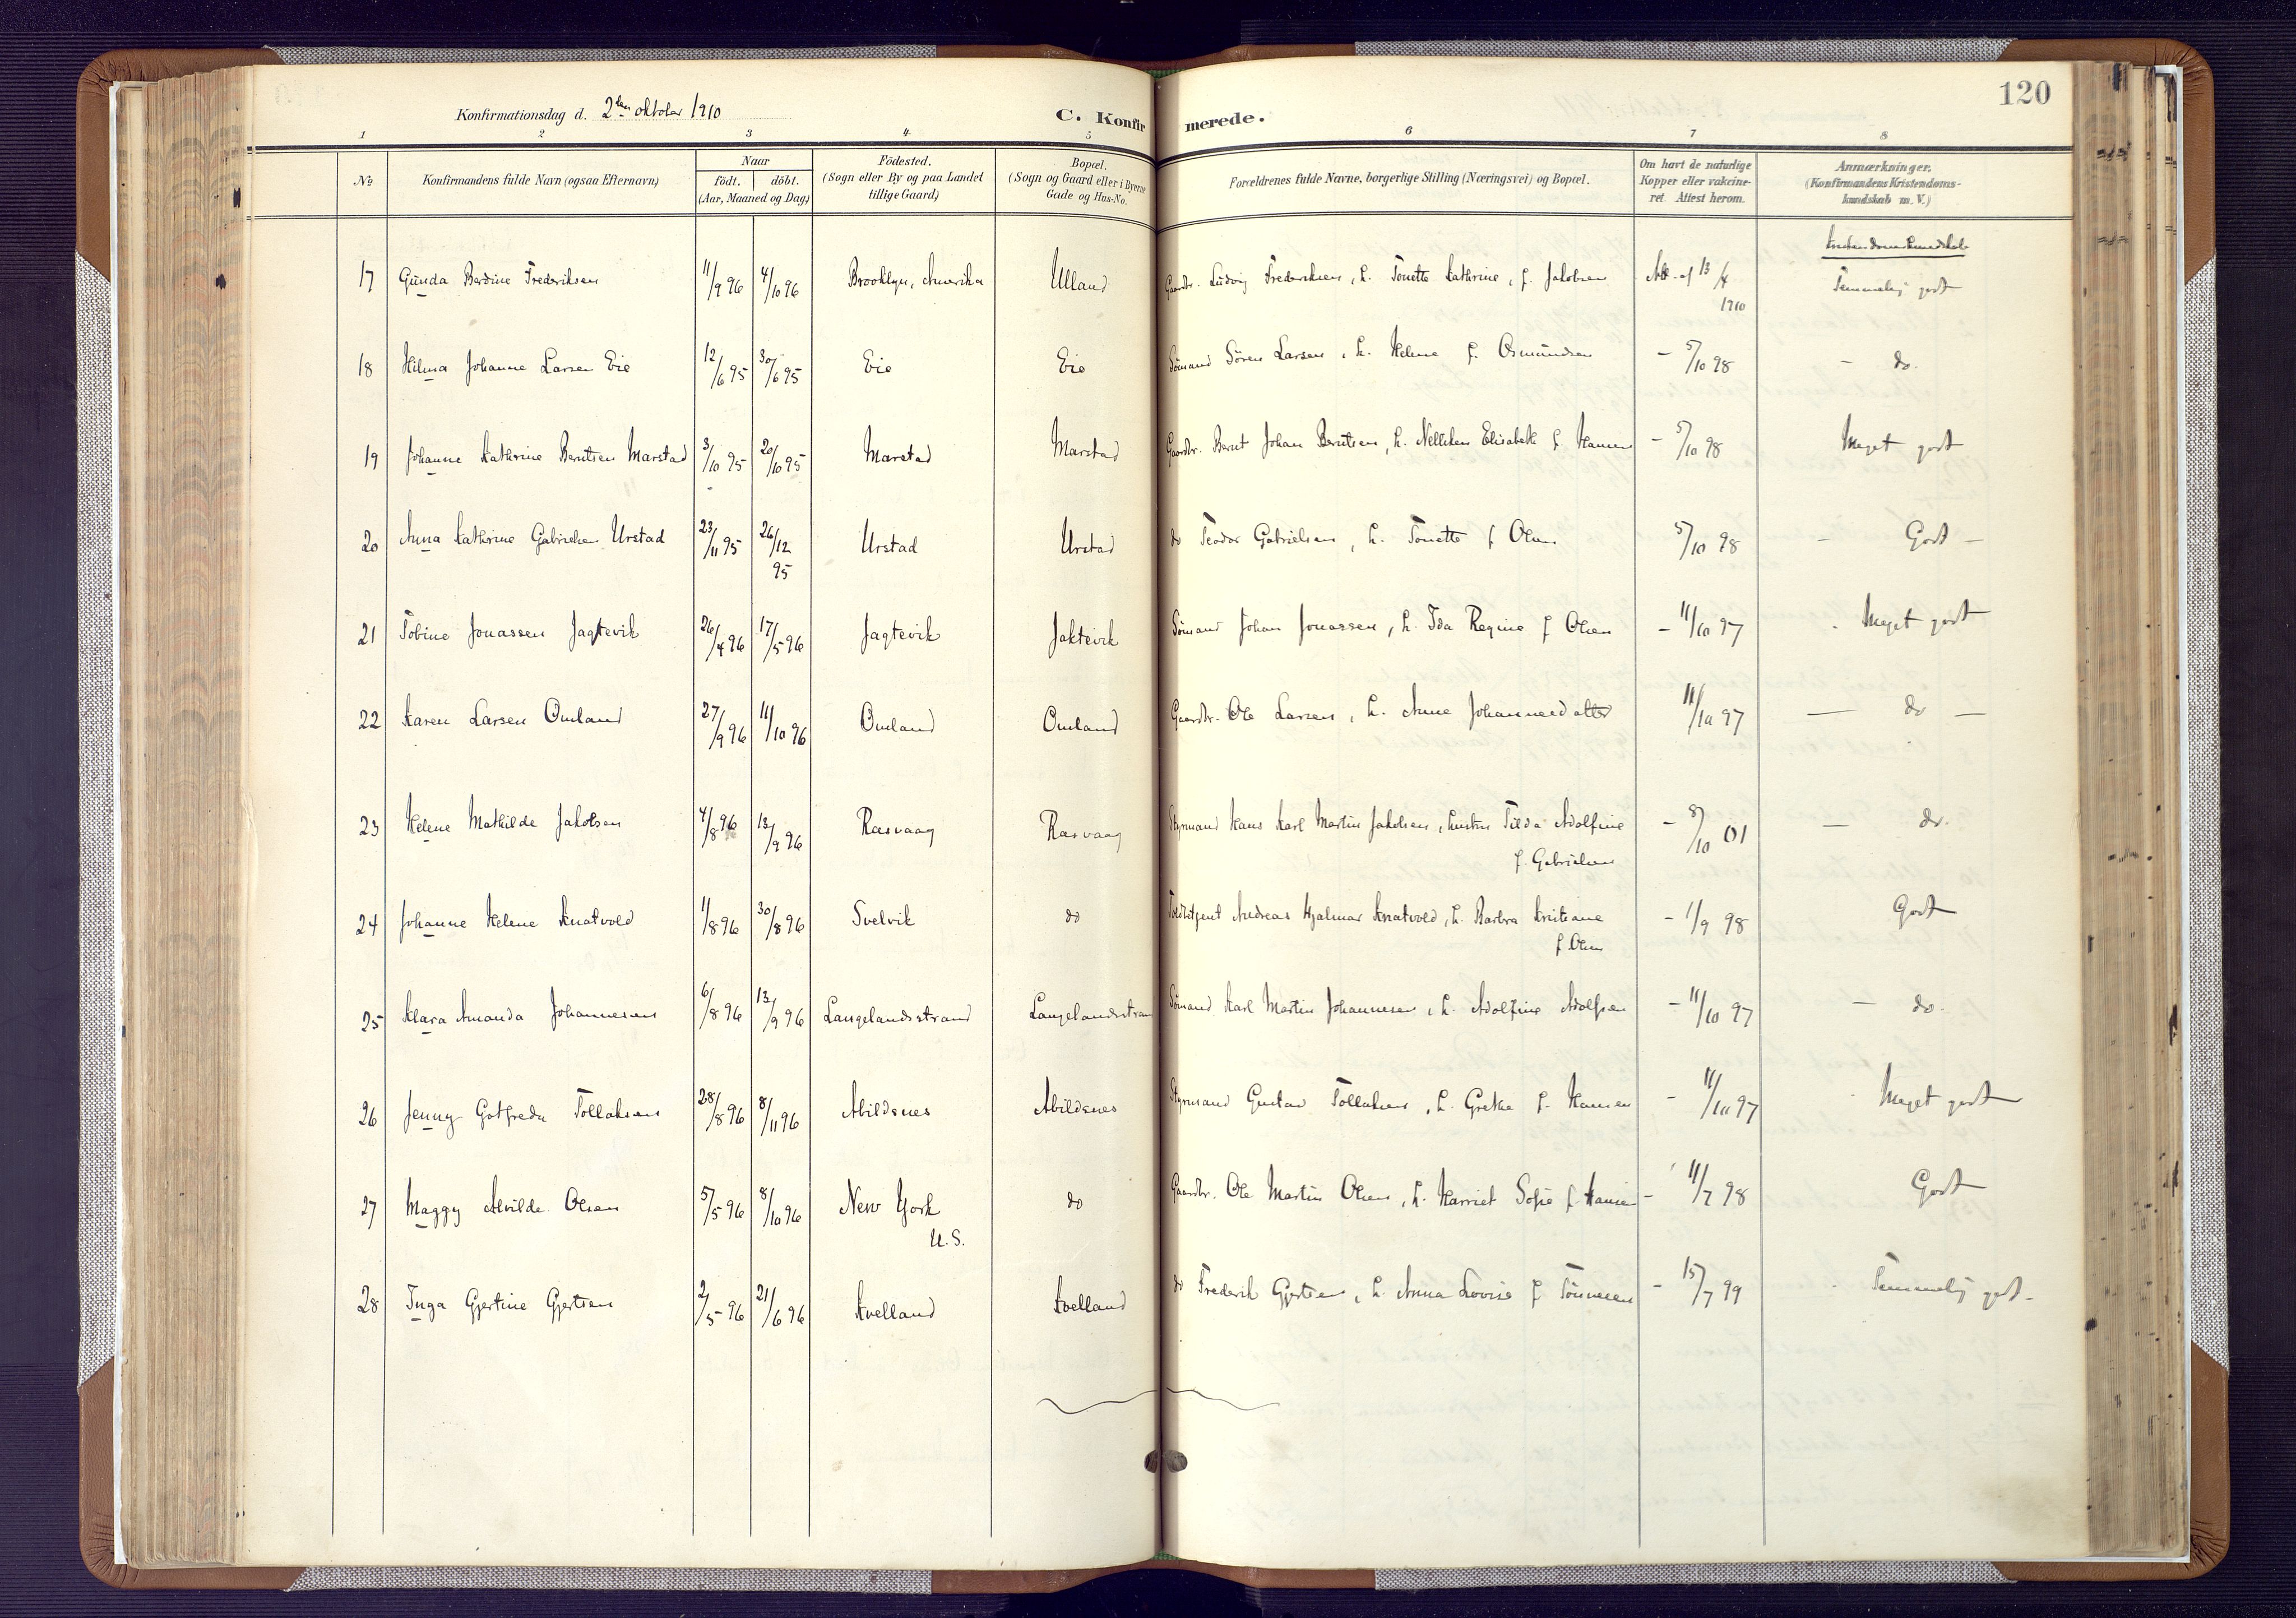 120
Konfirmationsdag d. 2den oktober 1910
C. Konfirmerede.
1 2 3 4 5 6 7 8
No
Konfirmandens fulde Navn (ogsaa Efternavn)
Naar
födt. döbt.
(Aar, Maaned og Dag)
Födested.
(Sogn eller By og paa Landet
tillige Gaard)
Bopæl.
(Sogn og Gaard eller i Byerne
Gade og Hus-No.
Forældrenes fulde Navne, borgerlige Stilling (Næringsvei) og Bopæl.
Om havt de naturlige
Kopper eller vakcine-
ret. Attest herom.
Anmærkninger.
(Konfirmandens Kristendoms-
kundskab m. V.)
Kristendomskundskab
17 Gunda Berdine Frederiksen 11/9 96 4/10 96 Brooklyn, Amerika Ulland Gaardbr. Ludvig Frederiksen, h. Tonette Kathrine, f. Jakobsen Att. af 13/4 Temmelig godt
1910
18 Hilma Johanne Larsen Eie 12/6 95 30/6 95 Eie Eie Sømand Sören Larsen, h. Helene f. Osmundsen - 5/10 98 - do.
19 Johanne Kathrine Berntsen Marstad 3/10 95 20/10 95 Marstad Marstad Gaardbr. Bernt Johan Berntsen, h. Nelliken Elisabeth f. Hansen - 5/10 98 Meget godt
20 Anna Kathrine Gabrielsen Urstad 23/11 95 26/12 Urstad Urstad do Teodor Gabrielsen, h. Tonette f Olsen 5/10 98 - Godt -
95
21 Tobine Jonassen Jagtevik 26/4 96 17/5 96 Jagtevik Jaktevik Sømand Johan Jonassen, h. Ida Regine f Olsen - 11/10 97 Meget godt
22 Karen Larsen Omland 27/9 96 11/10 96 Omland Omland Gaardbr. Ole Larsen, h. Anne Johannesdatter 11/10 97 - do -
23 Helene Mathilde Jakobsen 4/8 96 13/9 96 Rasvaag Rasvaag Styrmand Hans Karl Martin Jakobsen, hustru Tilda Adolfine - 8/10 01 - do.
f. Gabrielsen
24 Johanne Helene Knatvold 11/8 96 30/8 96 Svelvik do Andreas Hjalmar Knatvold, h. Barbra Kristiane - 1/9 98 Godt
f. Olsen
25 Klara Amanda Johannesen 6/8 96 13/9 96 Langelandsstrand Langelandsstran Sømand Karl Martin Johannesen, h. Adolfine Adolfsen - 11/10 97 - do.
26 Jenny Gotfreda Tollaksen 28/8 96 8/11 96 Abildsnes Abildsnes Styrmand Gustav Tollaksen, h. Grethe f. Hansen - 11/10 97 Meget godt
27 Maggy Alvilde Olsen 5/5 96 8/10 96 New York do Gaardbr. Ole Martin Olsen, h. Harriet Sofie f. Hansen - 11/7 98 Godt
U.S.
28 Inga Gjertine Gjertsen 2/5 96 21/6 96 Kvelland Kvelland do Frederik Gjertsen, h. Anna Lovise f Tönnesen - 15/7 99 Temmelig godt -